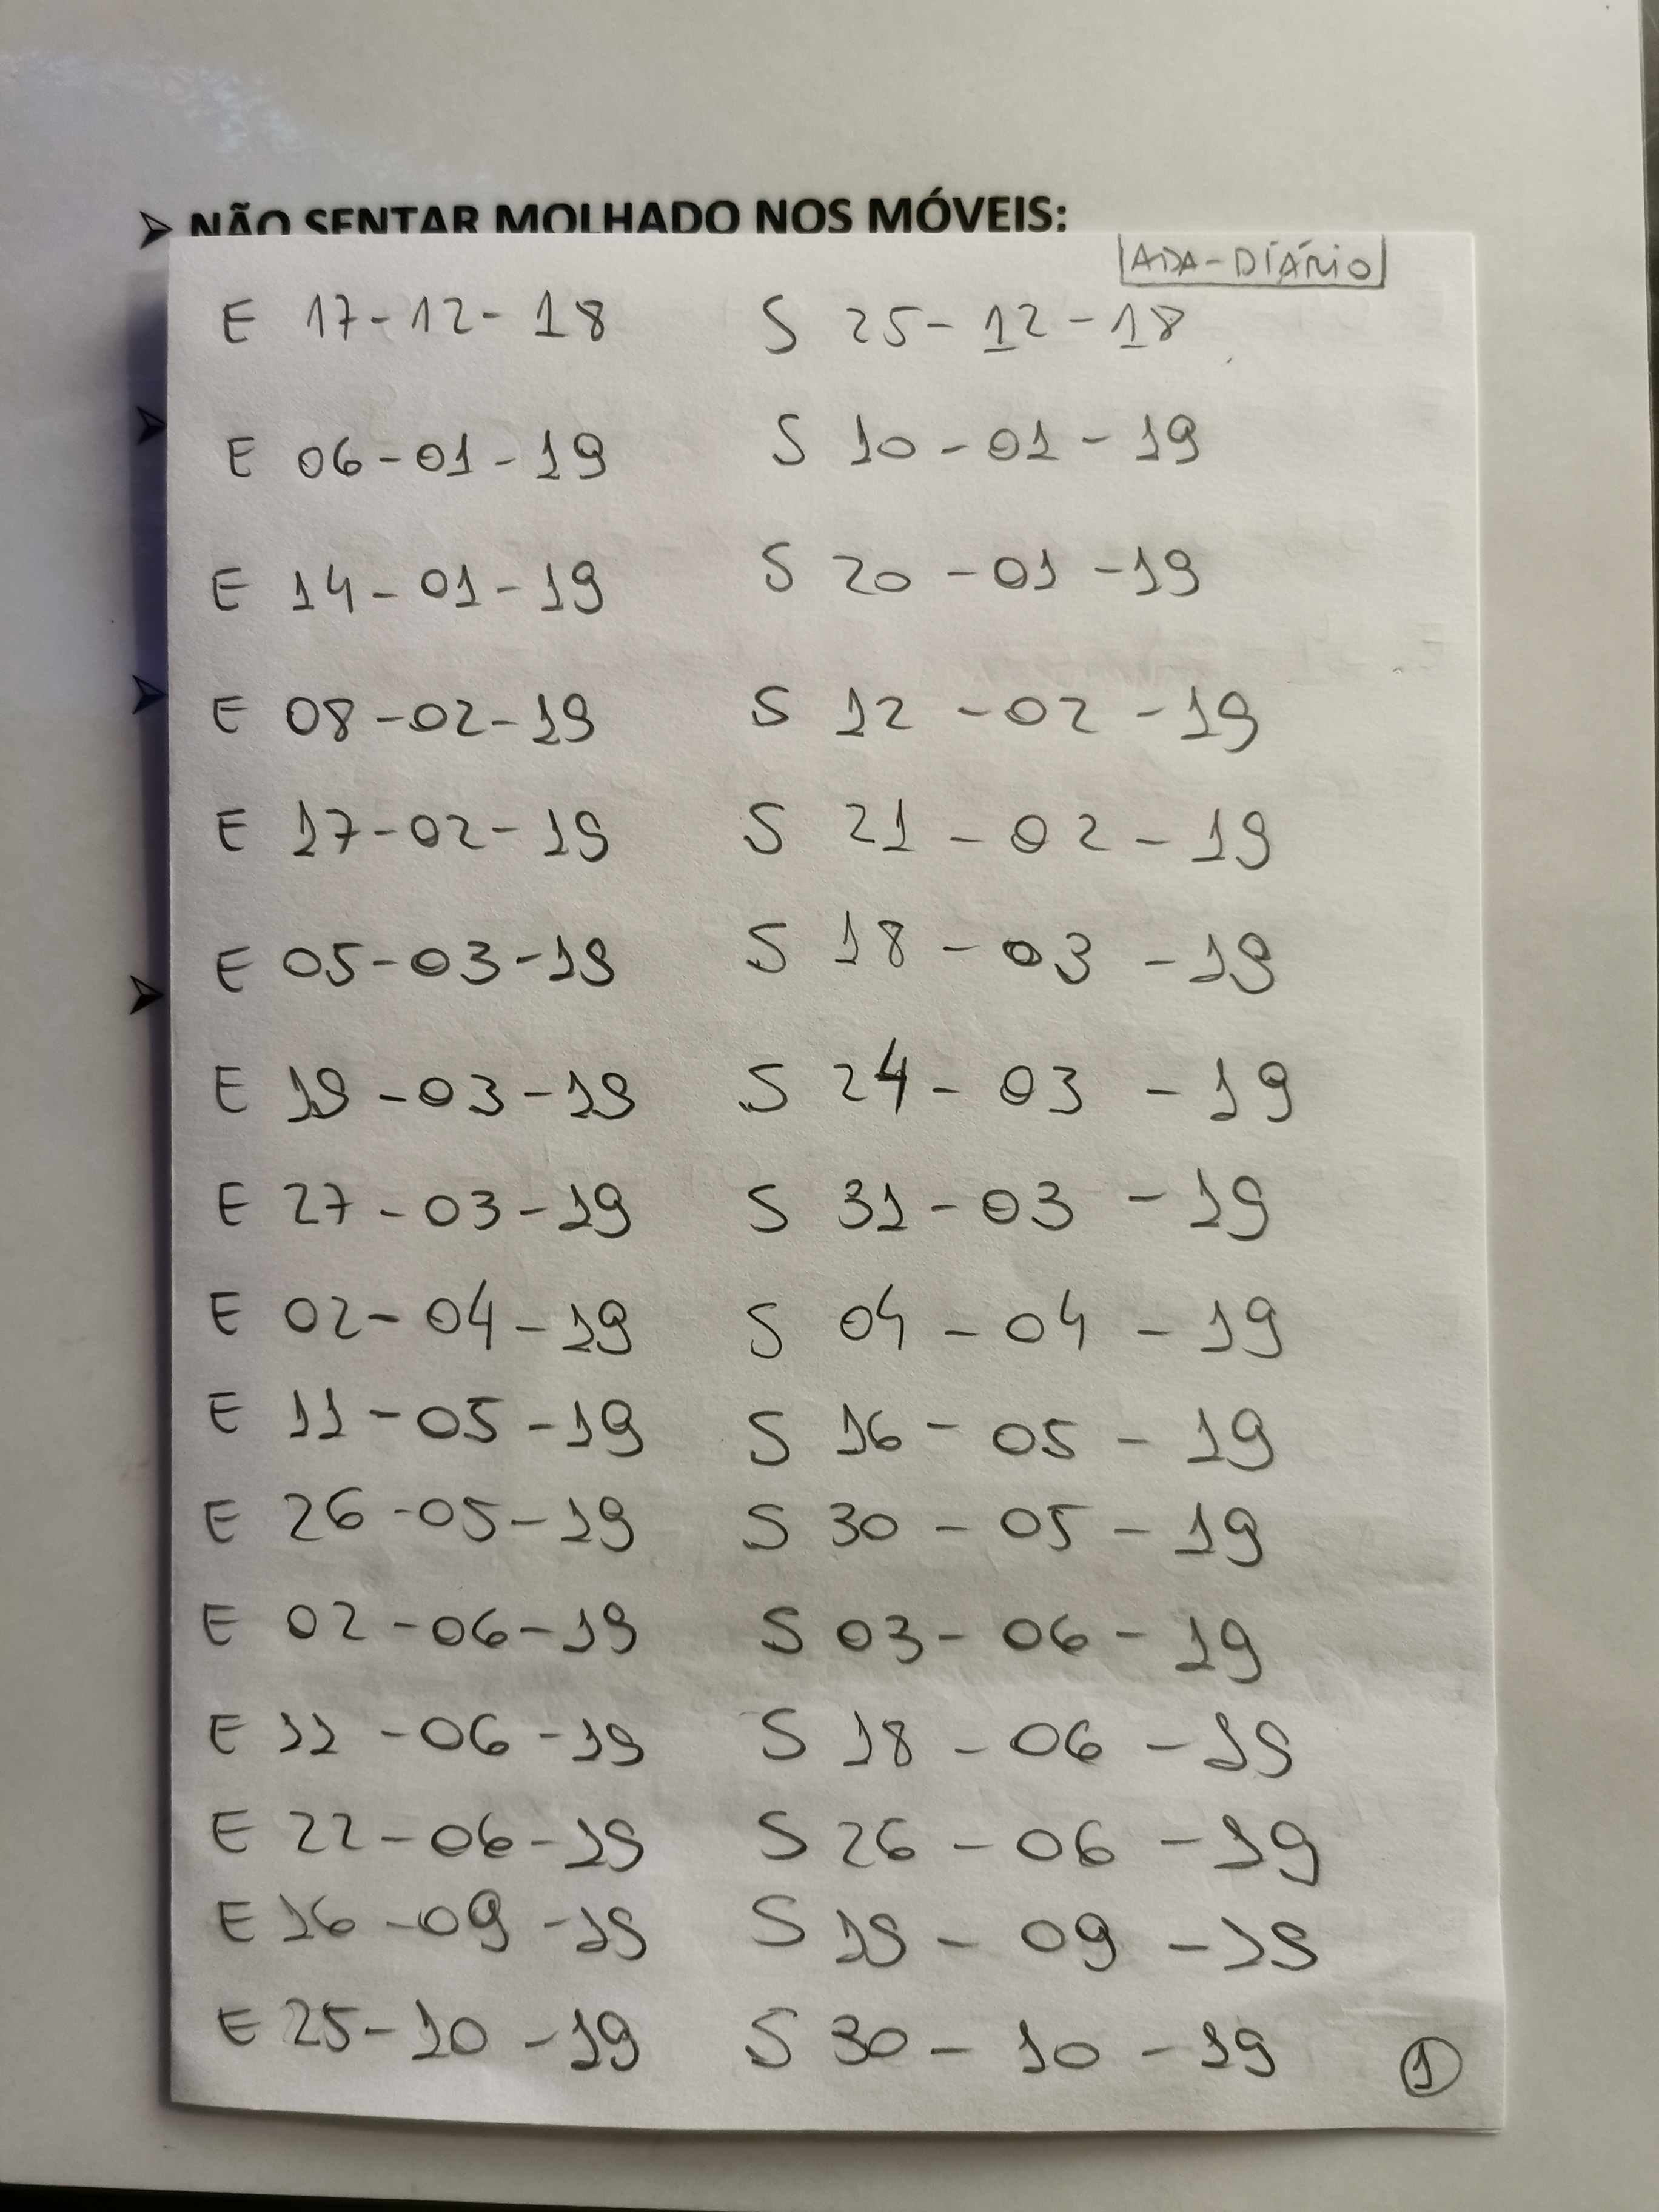 ➢ NÃO SENTAR MOLHADO NOS MÓVEIS:
ADA-DIÁRIO
E 17-12-18 S 25-12-18
E 06-01-19 S 10-01-19
E 14-01-19 S 20-01-19
E 08-02-19 S 12-02-19
E 17-02-19 S 21-02-19
E 05-03-19 S 18-03-19
E 19-03-19 S 24-03-19
E 27-03-19 S 31-03-19
E 02-04-19 S 04-04-19
E 11-05-19 S 16-05-19
E 26-05-19 S 30-05-19
E 02-06-19 S 03-06-19
E 11-06-19 S 18-06-19
E 22-06-19 S 26-06-19
E 16-09-19 S 19-09-19
E 25-10-19 S 30-10-19
1